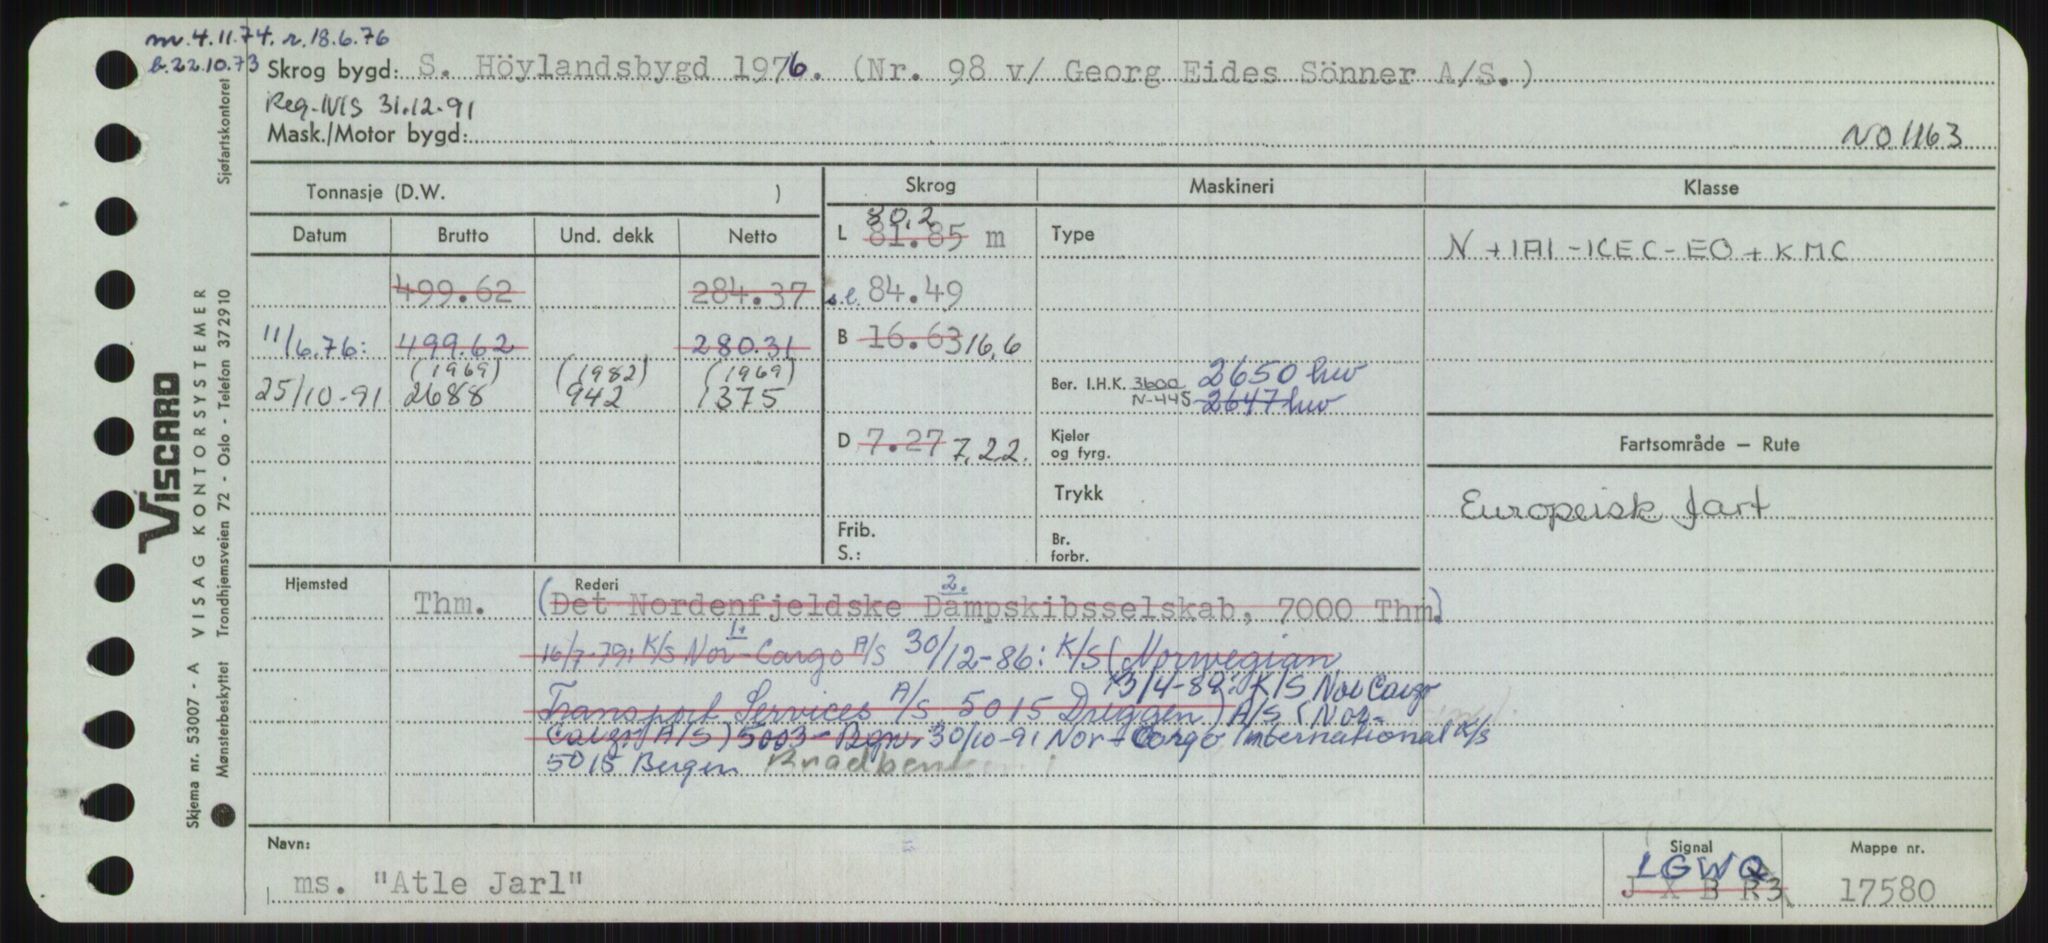 m.4.11.74. r.18.6.76
b.22.10.73 Skrog bygd: S. Höylandsbygd 1976. (Nr. 98 v/ Georg Eides Sönner A/S.)
Reg. NIS 31.12.91
Mask./Motor bygd: NO 1163
Tonnasje (D.W. )
Skrog Maskineri Klasse
Datum Brutto Und. dekk Netto
L 81.85 m 80,2
Type
N +1A1-ICE C-EO + KMC
499.62 284.37 s.l. 84.49
11/6.76: 499.62 280.31 B 16.63 16,6
(1969) (1982) (1969)
25/10-91 2688 942 1375
Ber. I.H.K. 3600 2650 hw
N-445 2647 hw
D 7.27 7,22.
Kjeler
og fyrg.
Fartsområde – Rute
Trykk
Europeisk fart
Frib.
S.:
Br.
forbr.
Hjemsted Rederi 2.
Thm. (Det Nordenfjeldske Dampskibsselskab, 7000 Thm.)
1.
16/7-79: K/S Nor-Cargo A/S 30/12-86: K/S (Norwegian
Transport Services A/S, 5015 Dreggen) 13/4-89: K/S Nor Cargo
A/S (Nor-
Cargo A/S) 5003 - Bgn. 30/10-91 Nor-Cargo International K/S
5015 Bergen
Navn: Signal Mappe nr.
ms. "Atle Jarl" LGWQ 17580
J X B R3
VISCARD
VISAG KONTORSYSTEMER
Skjema nr. 53007 - A
Mønsterbeskyttet Trondhjemsveien 72 - Oslo - Telefon 372910
Sjøfartskontoret